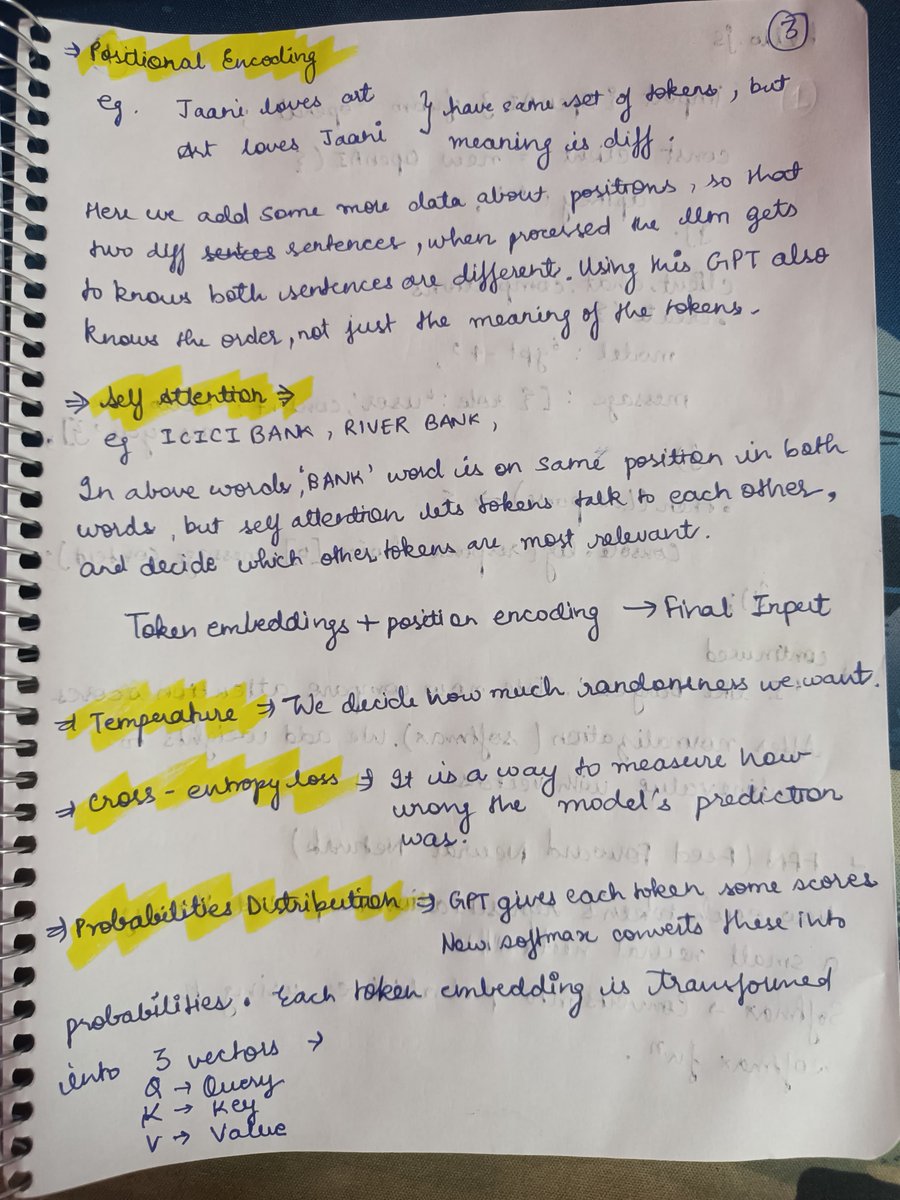 3
⇒ Positional Encoding
eg. Jaani loves art } have same set of tokens, but
Art loves Jaani meaning is diff.
Here we add some more data about positions, so that
two diff sentces sentences, when processed the llm gets
to knows both sentences are different. Using this GPT also
knows the order, not just the meaning of the tokens.
⇒ Self Attention ⇒
eg ICICI BANK, RIVER BANK,
In above words, 'BANK' word is on same position in both
words, but self attention lets tokens talk to each other,
and decide which other tokens are most relevant.
Token embeddings + position encoding → Final Input
⇒ Temperature ⇒ We decide how much randomness we want.
⇒ Cross-entropy loss ⇒ It is a way to measure how
wrong the model's prediction
was.
⇒ Probabilities Distribution ⇒ GPT gives each token some scores
Now softmax converts these into
probabilities. Each token embedding is transformed
into 3 vectors →
Q → Query
K → Key
V → Value